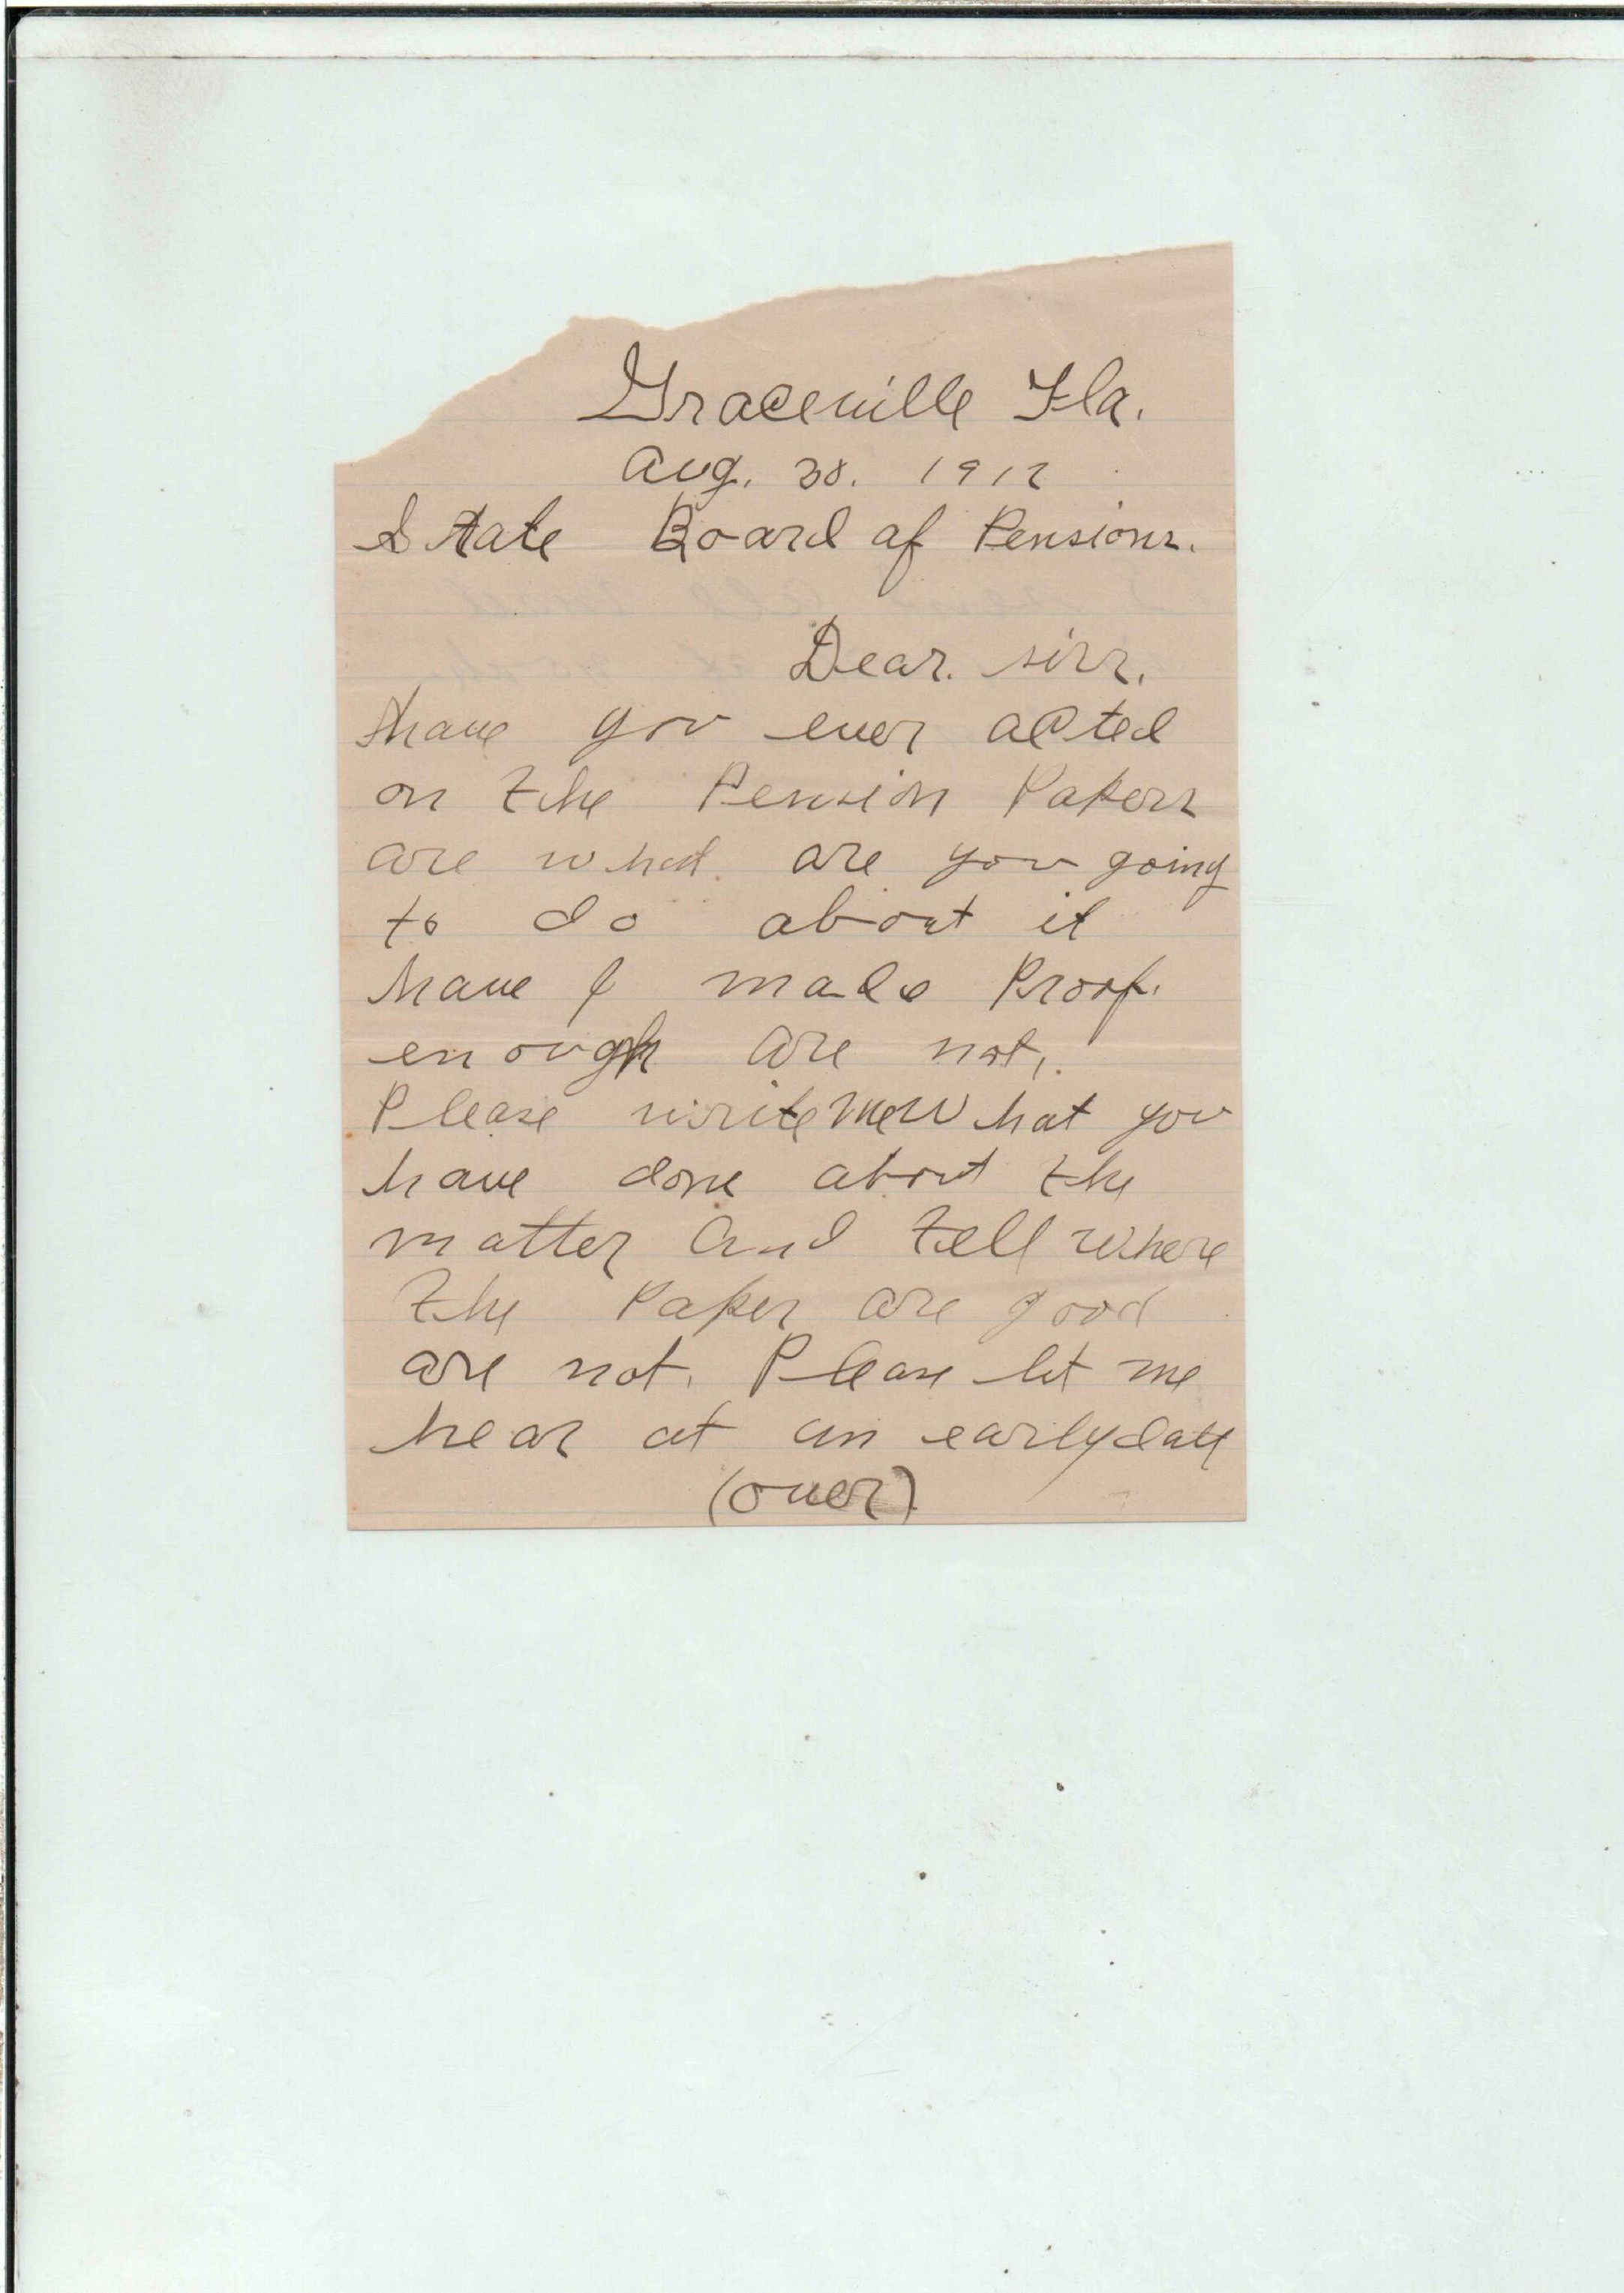 Graceville Fla.
Aug. 30. 1912
State Board of Pensions.
Dear. sirr.
have you ever acted
on the Pension Papers
are what. are you going
to do about it
have I made Proof.
enough are not.
Please write me What you
have done about the
matter and tell where
the Paper are good
are not. Please let me
hear at an early date
(over)